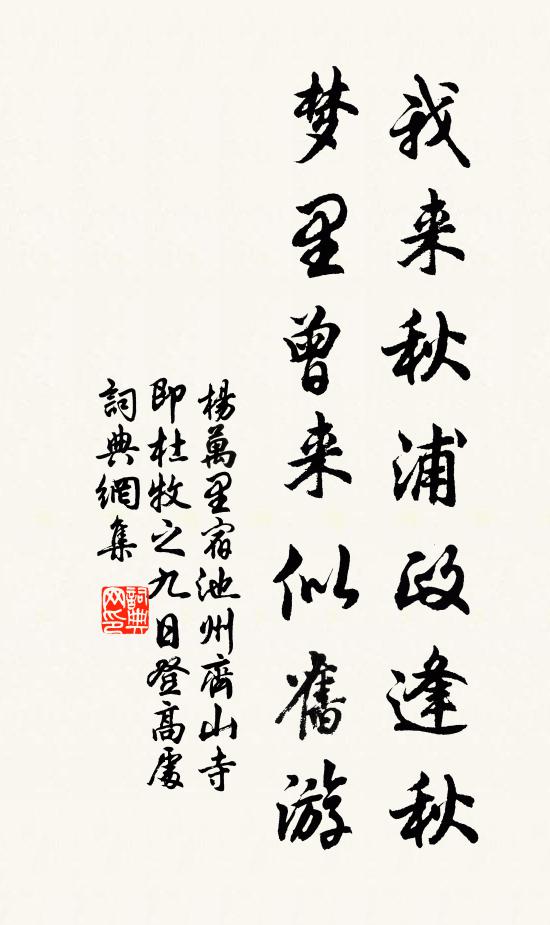 我来秋浦政逢秋
梦里曾来似舊游
楊萬里宿池州齊山寺
即杜牧之九日登高處
詞典網集
詞典网印